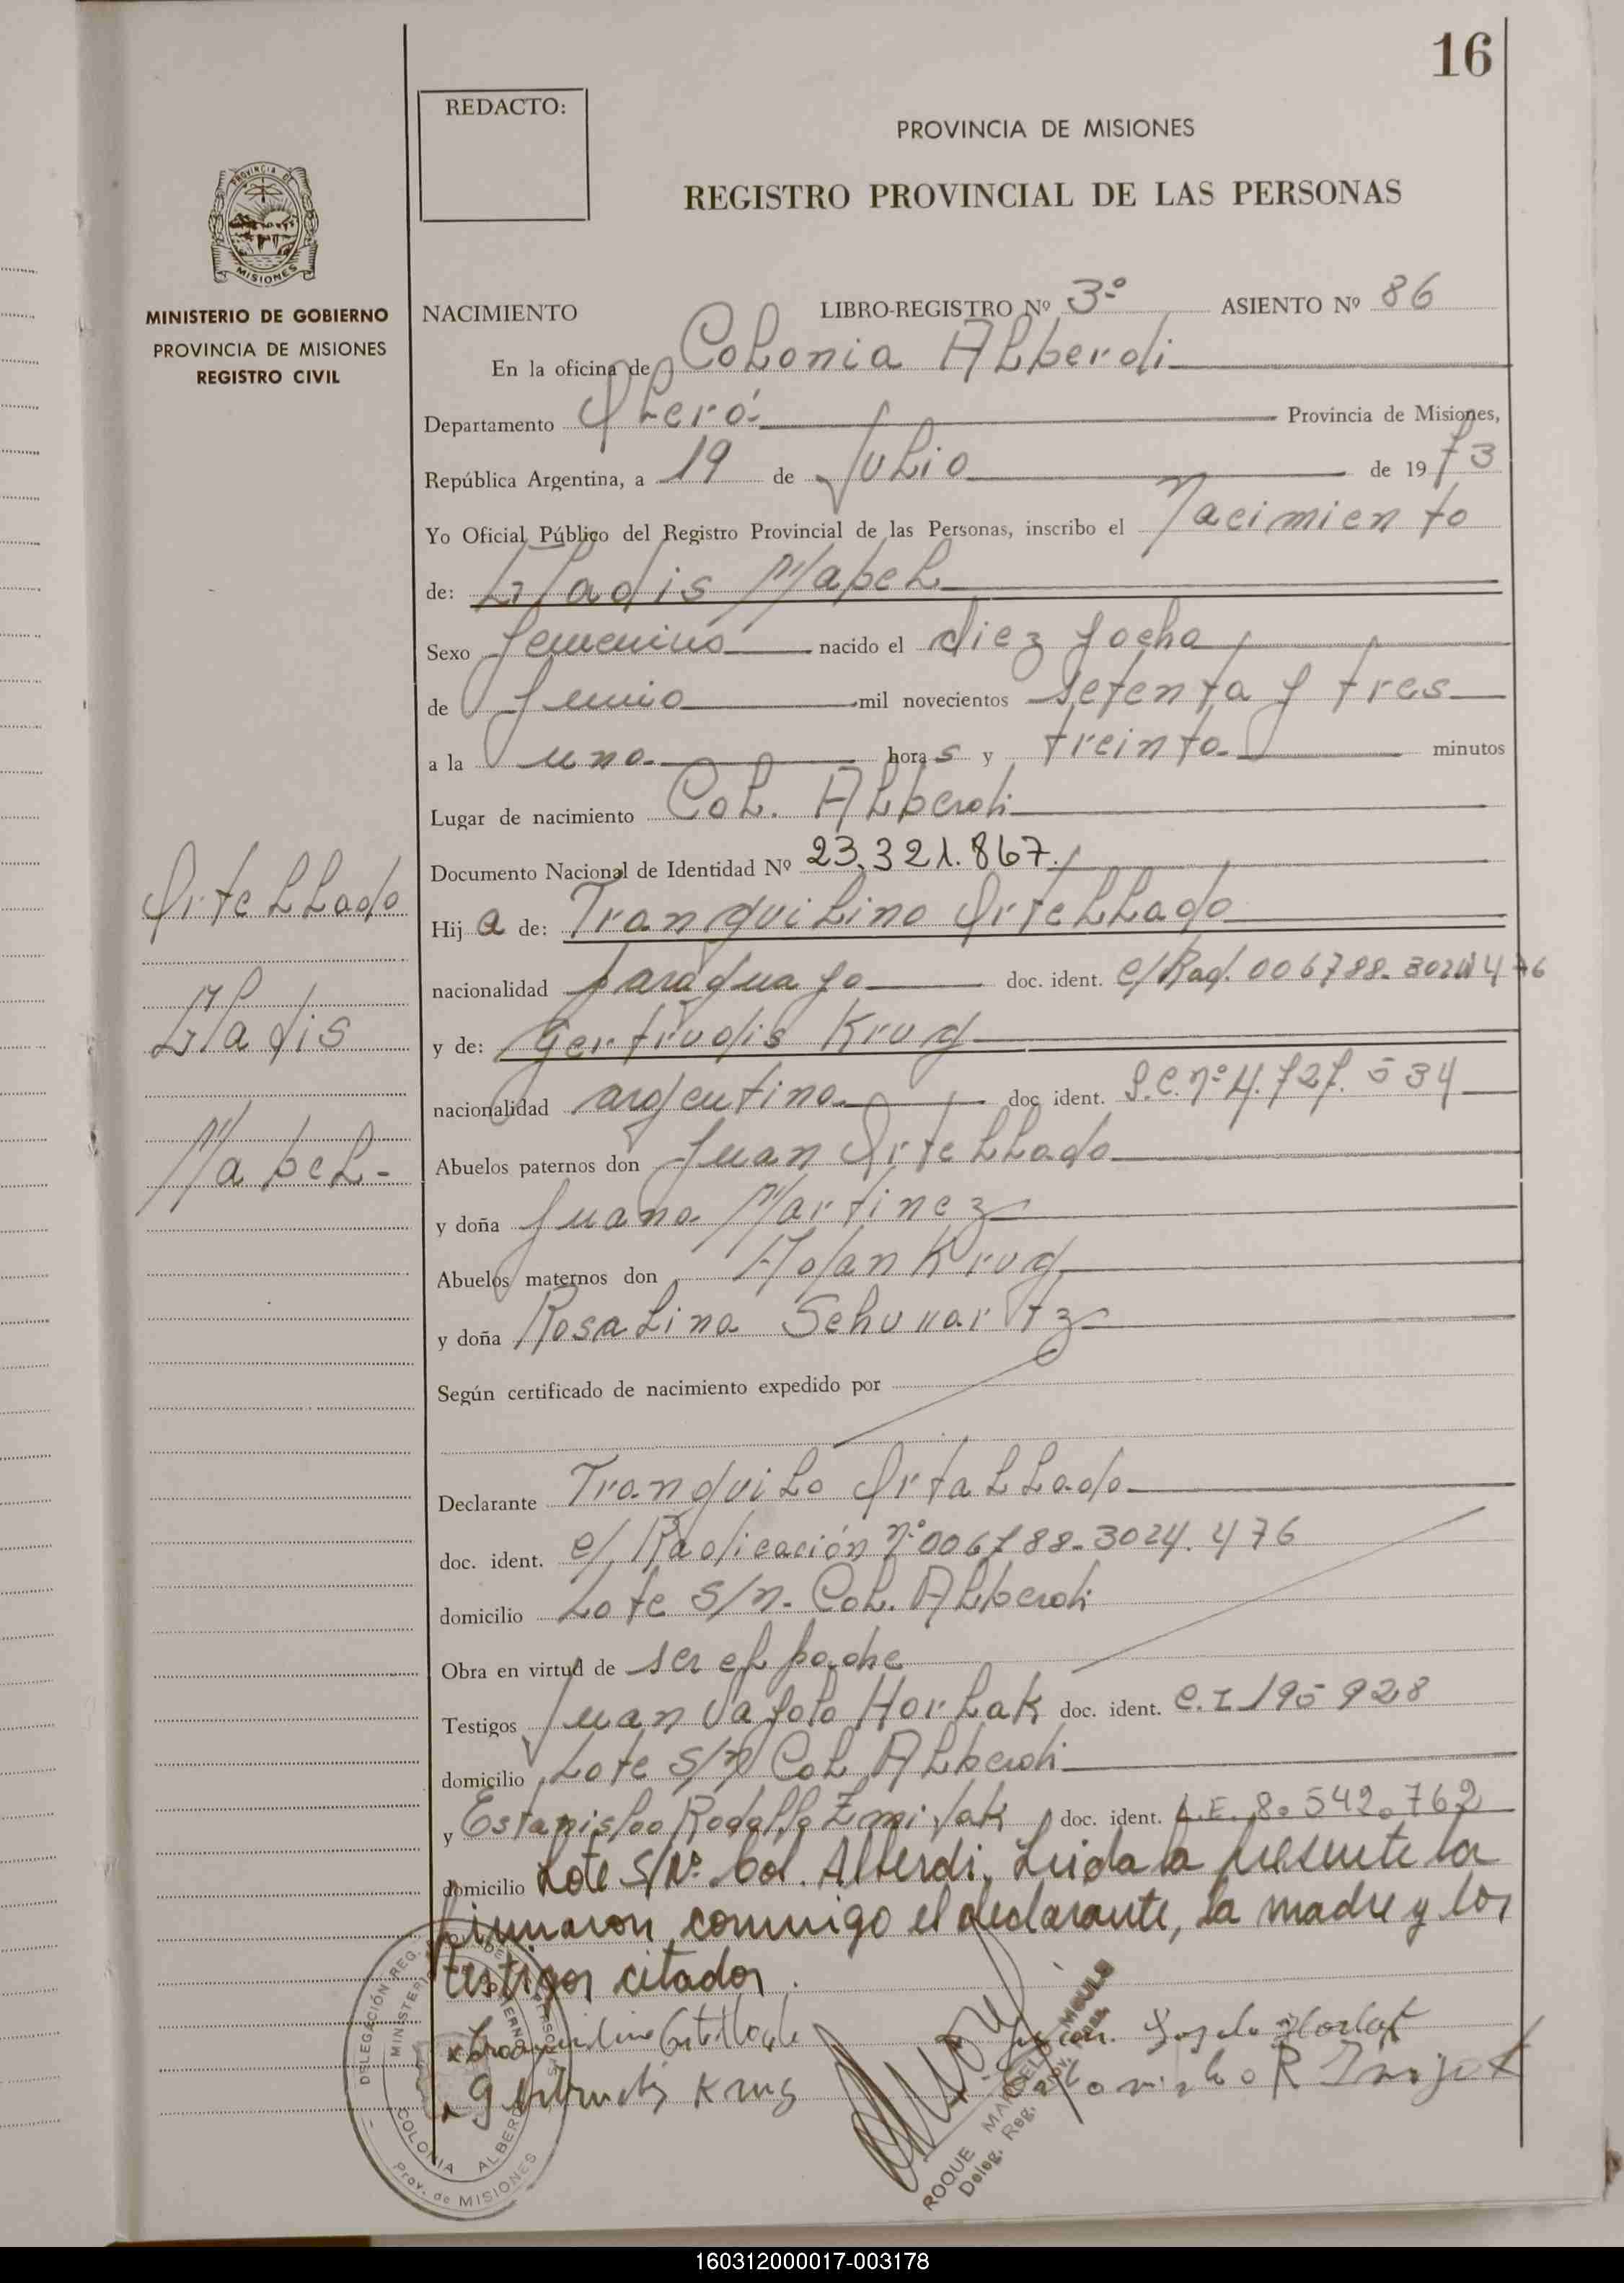 16
REDACTO:
PROVINCIA DE MISIONES
REGISTRO PROVINCIAL DE LAS PERSONAS
PROVINCIA DE
MISIONES
MINISTERIO DE GOBIERNO
PROVINCIA DE MISIONES
REGISTRO CIVIL
NACIMIENTO LIBRO-REGISTRO Nº 3º ASIENTO Nº 86
En la oficina de Colonia Alberdi
Departamento Oberá Provincia de Misiones,
República Argentina, a 19 de Julio de 1973
Yo Oficial Público del Registro Provincial de las Personas, inscribo el Nacimiento
de: Gladis Mabel
Sexo femenino nacido el diez y ocho
de Junio mil novecientos setenta y tres
a la una horas y treinta minutos
Lugar de nacimiento Col. Alberdi
Documento Nacional de Identidad Nº 23.321.867.
Hija de: Tranquilino Ortellado
nacionalidad paraguayo doc. ident. c/Rad. 006788-3024476
y de: Gertrudis Krug
nacionalidad argentina doc ident. L.C. nº 4.727.534
Abuelos paternos don Juan Ortellado
y doña Juana Martinez
Abuelos maternos don Adan Krug
y doña Rosalina Schuvartz
Según certificado de nacimiento expedido por
Declarante Tranquilo Ortallado
doc. ident. c/ Radicación nº 006788-3024.476
domicilio Lote s/n. Col. Alberdi
Obra en virtud de ser el padre
Testigos Juan Horlak doc. ident. C.I 195928
domicilio Lote s/n Col Alberdi
y Estanislao Rodolfo doc. ident. L.E. 8.542.762
domicilio Lote S/Nº. Col. Alberdi. Leida la presente la
firmaron conmigo el declarante, la madre y los
testigos citados.
Ortellado
Gladis
Mabel-
Gertrudis Krug
ROQUE
Deleg. Reg. Prov. Pers.
DELEGACIÓN REG.
MINISTERIO
COLONIA ALBERDI
Prov. de MISIONES
160312000017-003178